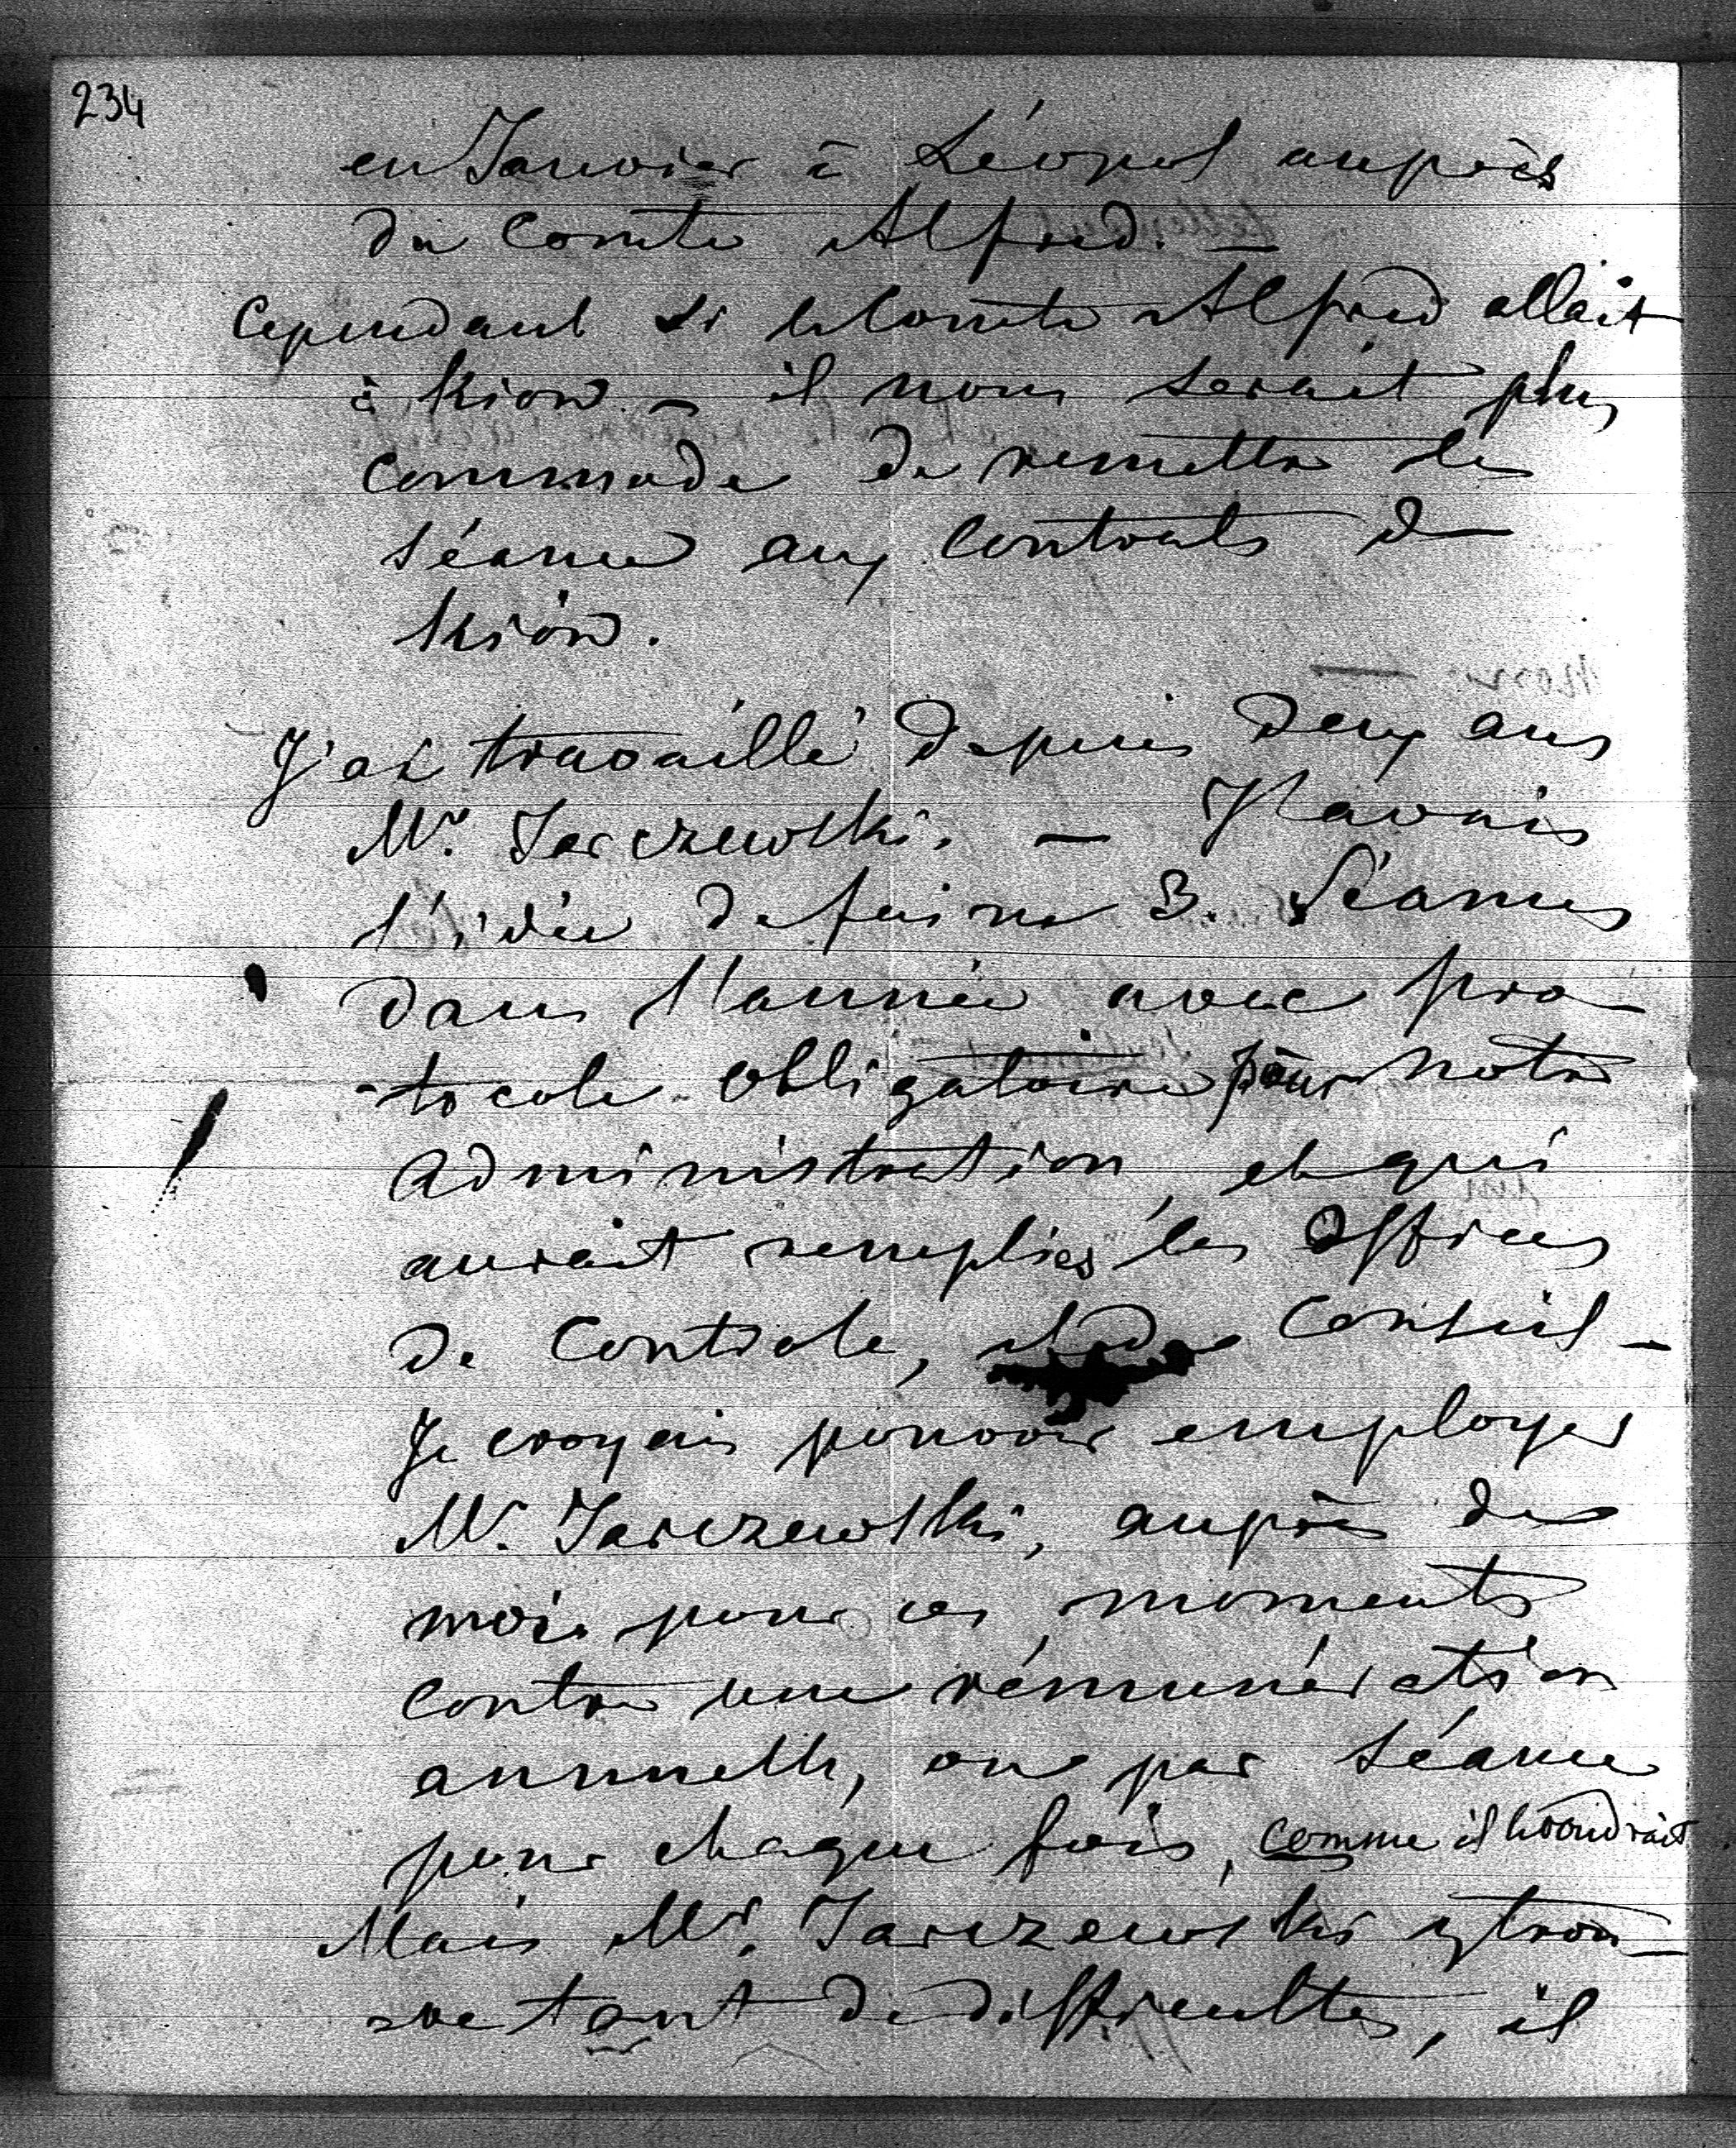 234
en Janvier à Léopol auprès
du Comte Alfred. —
Cependant si le Comte Alfred allait
à Kiow – il nous serait plus
commode de remettre la
séance aux Contrats de
Kiow.
J'ai travaillé depuis deux ans
Mr. Jarczewski. — J'avais
l'idée de faire 3. Séances
dans l'année avec pro-
-tocole obligatoire pour notre
administration, et qui
aurait remplies les offices
de Controle, et de Conseil –
Je croyais pouvoir employer
Mr. Jarczewski, auprès de
moi pour ces moments
contre une rémunération
annuelle, ou par séance
pour chaque fois, comme il voudrait
Mais Mr. Jarczewski y trou-
ve tant de difficultés, il